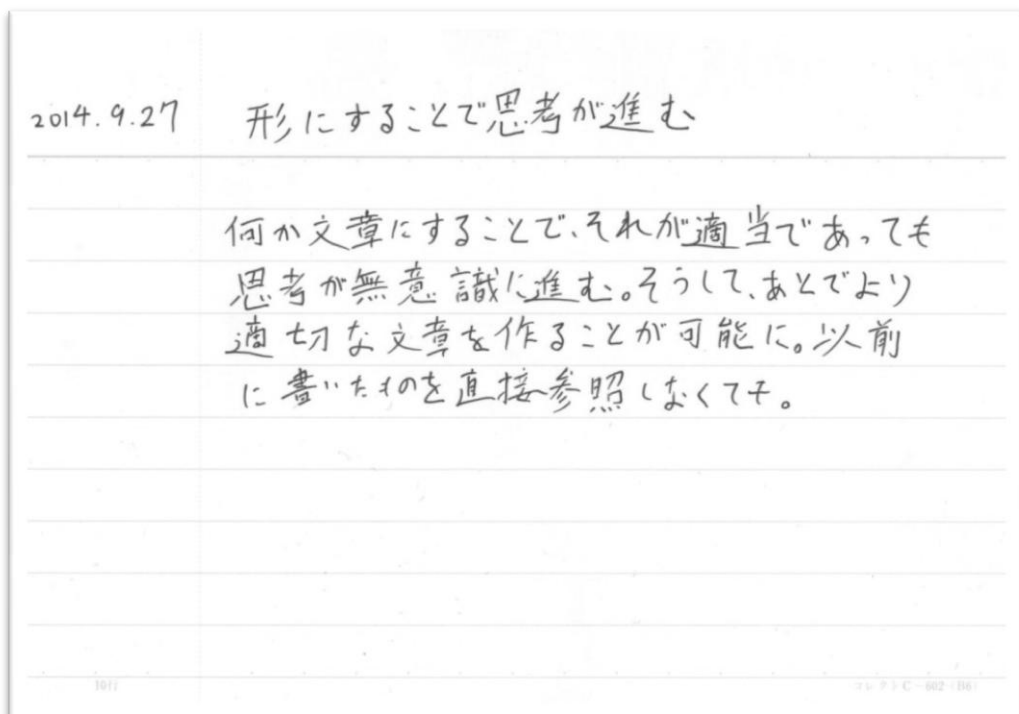 2014.9.27 形にすることで思考が進む
何か文章にすることで、それが適当であっても
思考が無意識に進む。そうして、あとでより
適切な文章を作ることが可能に。以前
に書いたものを直接参照しなくても。
10行 コレクト C-602 (B6)